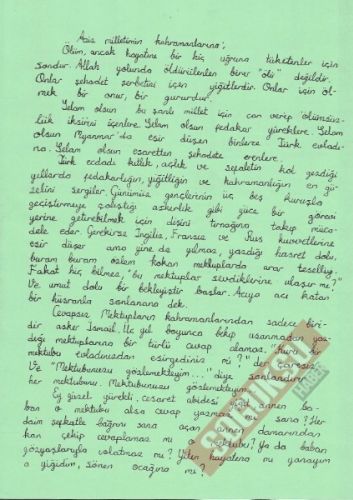 Aziz milletimin kahramanlarına;
Ölüm, ancak hayatını bir hiç uğruna tüketenler için
sondur. Allah yolunda öldürülenler birer "ölü" değildir.
Onlar şehadet şerbetini içen yiğitlerdir. Onlar için öl-
mek bir onur, bir gururdur.
Selam olsun bu şanlı millet için can verip ölümsüz-
lük iksirini içenlere. Selam olsun fedakar yüreklere. Selam
olsun Myanmar'da esir düşen binlerce Türk evladı-
na. Selam olsun esaretten şehadete erenlere.
Türk ecdadı kıtlık, açlık ve sefaletin kol gezdiği
yıllarda fedakarlığın, yiğitliğin ve kahramanlığın en gü-
zelini sergiler. Günümüz gençlerinin üç beş kuruşla
geçiştirmeye çalıştığı askerlik gibi yüce bir görevi
yerine getirebilmek için dişini tırnağına takıp müca-
dele eder. Gerekirse İngiliz, Fransız ve Rus kuvvetlerine
esir düşer ama yine de yılmaz, yazdığı hasret dolu,
buram buram özlem kokan mektuplarda arar teselliyi.
Fakat hiç bilmez, "bu mektuplar sevdiklerine ulaşır mı?"
Ve umut dolu bir bekleyiştir başlar. Acıya acı katan
bir hüsranla sonlanana dek.
Cevapsız Mektupların kahramanlarından sadece biri-
dir asker İsmail. yıl boyunca bekıp usanmadan yaz-
dığı mektuplarına bir türlü cevap alamaz. bir
mektubu evladınızdan esirgediniz mi?" der çaresiz.
Ve "Mektubunuzu gözlemekteyim...." diye sonlandırır
her mektubunu. Mektubunuzu gözlemekteyim
Ey güzel yürekli, cesaret abidesi yiğit, annen ba-
ban o mektubu alsa cevap yazmaz mı sana? Her
daim şefkatle bağrını sana açan annen damarından
kan çekip cevaplamaz mı o mektubu? Ya da baban
gözyaşlarıyla ıslatmaz mı? Yiten hayaline mi yanayım
a yiğidim, sönen ocağına mı?